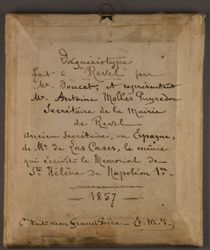 Daguerréotype
fait à Revel par
Mr. Doucet, et représentant
Mr. Antoine Puyredon
Secrétaire de la Mairie
de Revel
Ancien Secrétaire, en Espagne,
de Mr de Las Cases, le même
qui écrivit le Mémorial de
Ste Hélène de Napoléon 1er
1857
C'était mon Grand Père